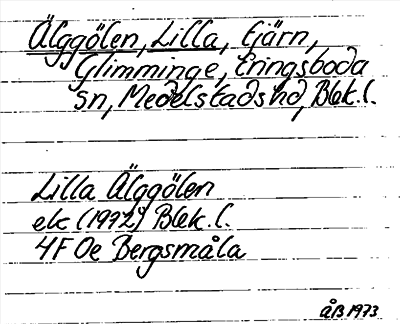 Älggölen, Lilla, tjärn,
Glimminge, Eringsboda
sn, Medelstads hd, Blek. l.
Lilla Älggölen
ek (1992) Blek. l.
4F 0e Bergsmåla
ÅB 1973